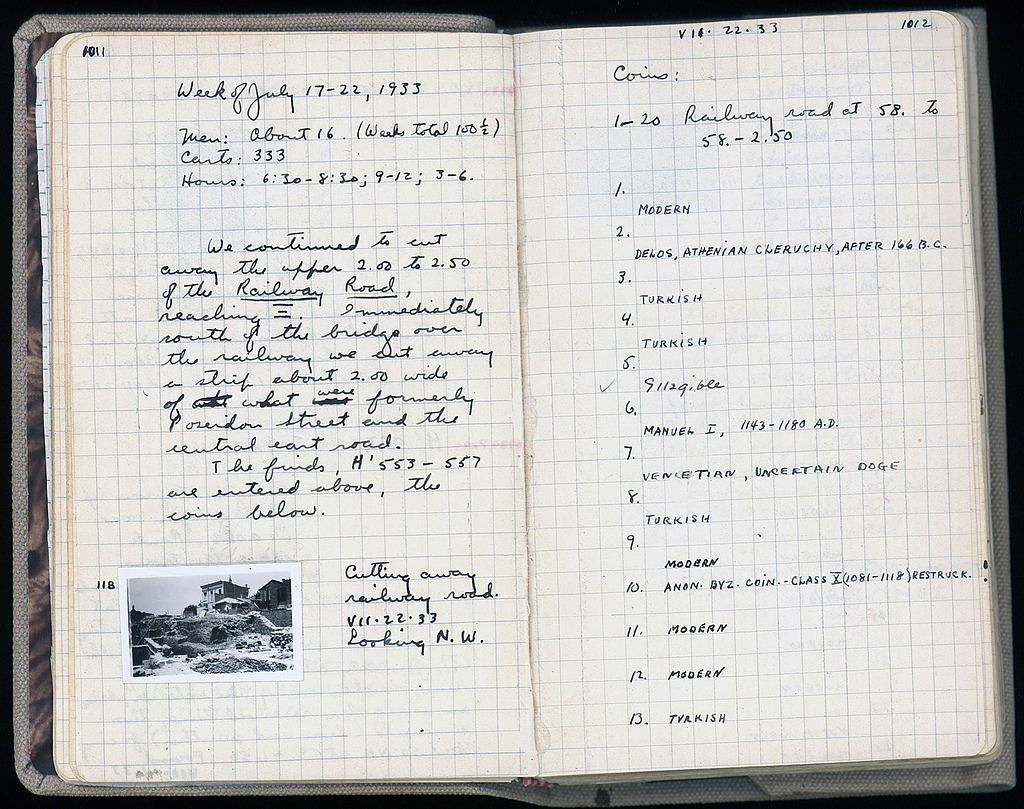 1011
Week of July 17-22, 1933
Men: About 16. (Weeks total 100½)
Carts: 333
Hours: 6:30-8:30; 9-12; 3-6.
We continued to cut
away the upper 2.00 to 2.50
of the Railway Road,
reaching Ξ. Immediately
south of the bridge over
the railway we cut away
a strip about 2.00 wide
of what were formerly
Poseidon Street and the
central east road.
The finds, H' 553-557
are entered above, the
coins below.
118
Cutting away
railway road.
VII·22·33
Looking N.W.
VII·22·33
1012
Coins:
1-20 Railway road at 58. to
58.-2.50
1.
MODERN
2.
DELOS, ATHENIAN CLERUCHY, AFTER 166 B.C.
3.
TURKISH
4.
TURKISH
5.
✓ Illegible
6.
MANUEL I, 1143-1180 A.D.
7.
VENETIAN, UNCERTAIN DOGE
8.
TURKISH
9.
MODERN
10. ANON. BYZ. COIN.-CLASS X(1081-1118)RESTRUCK.
11. MODERN
12. MODERN
13. TURKISH